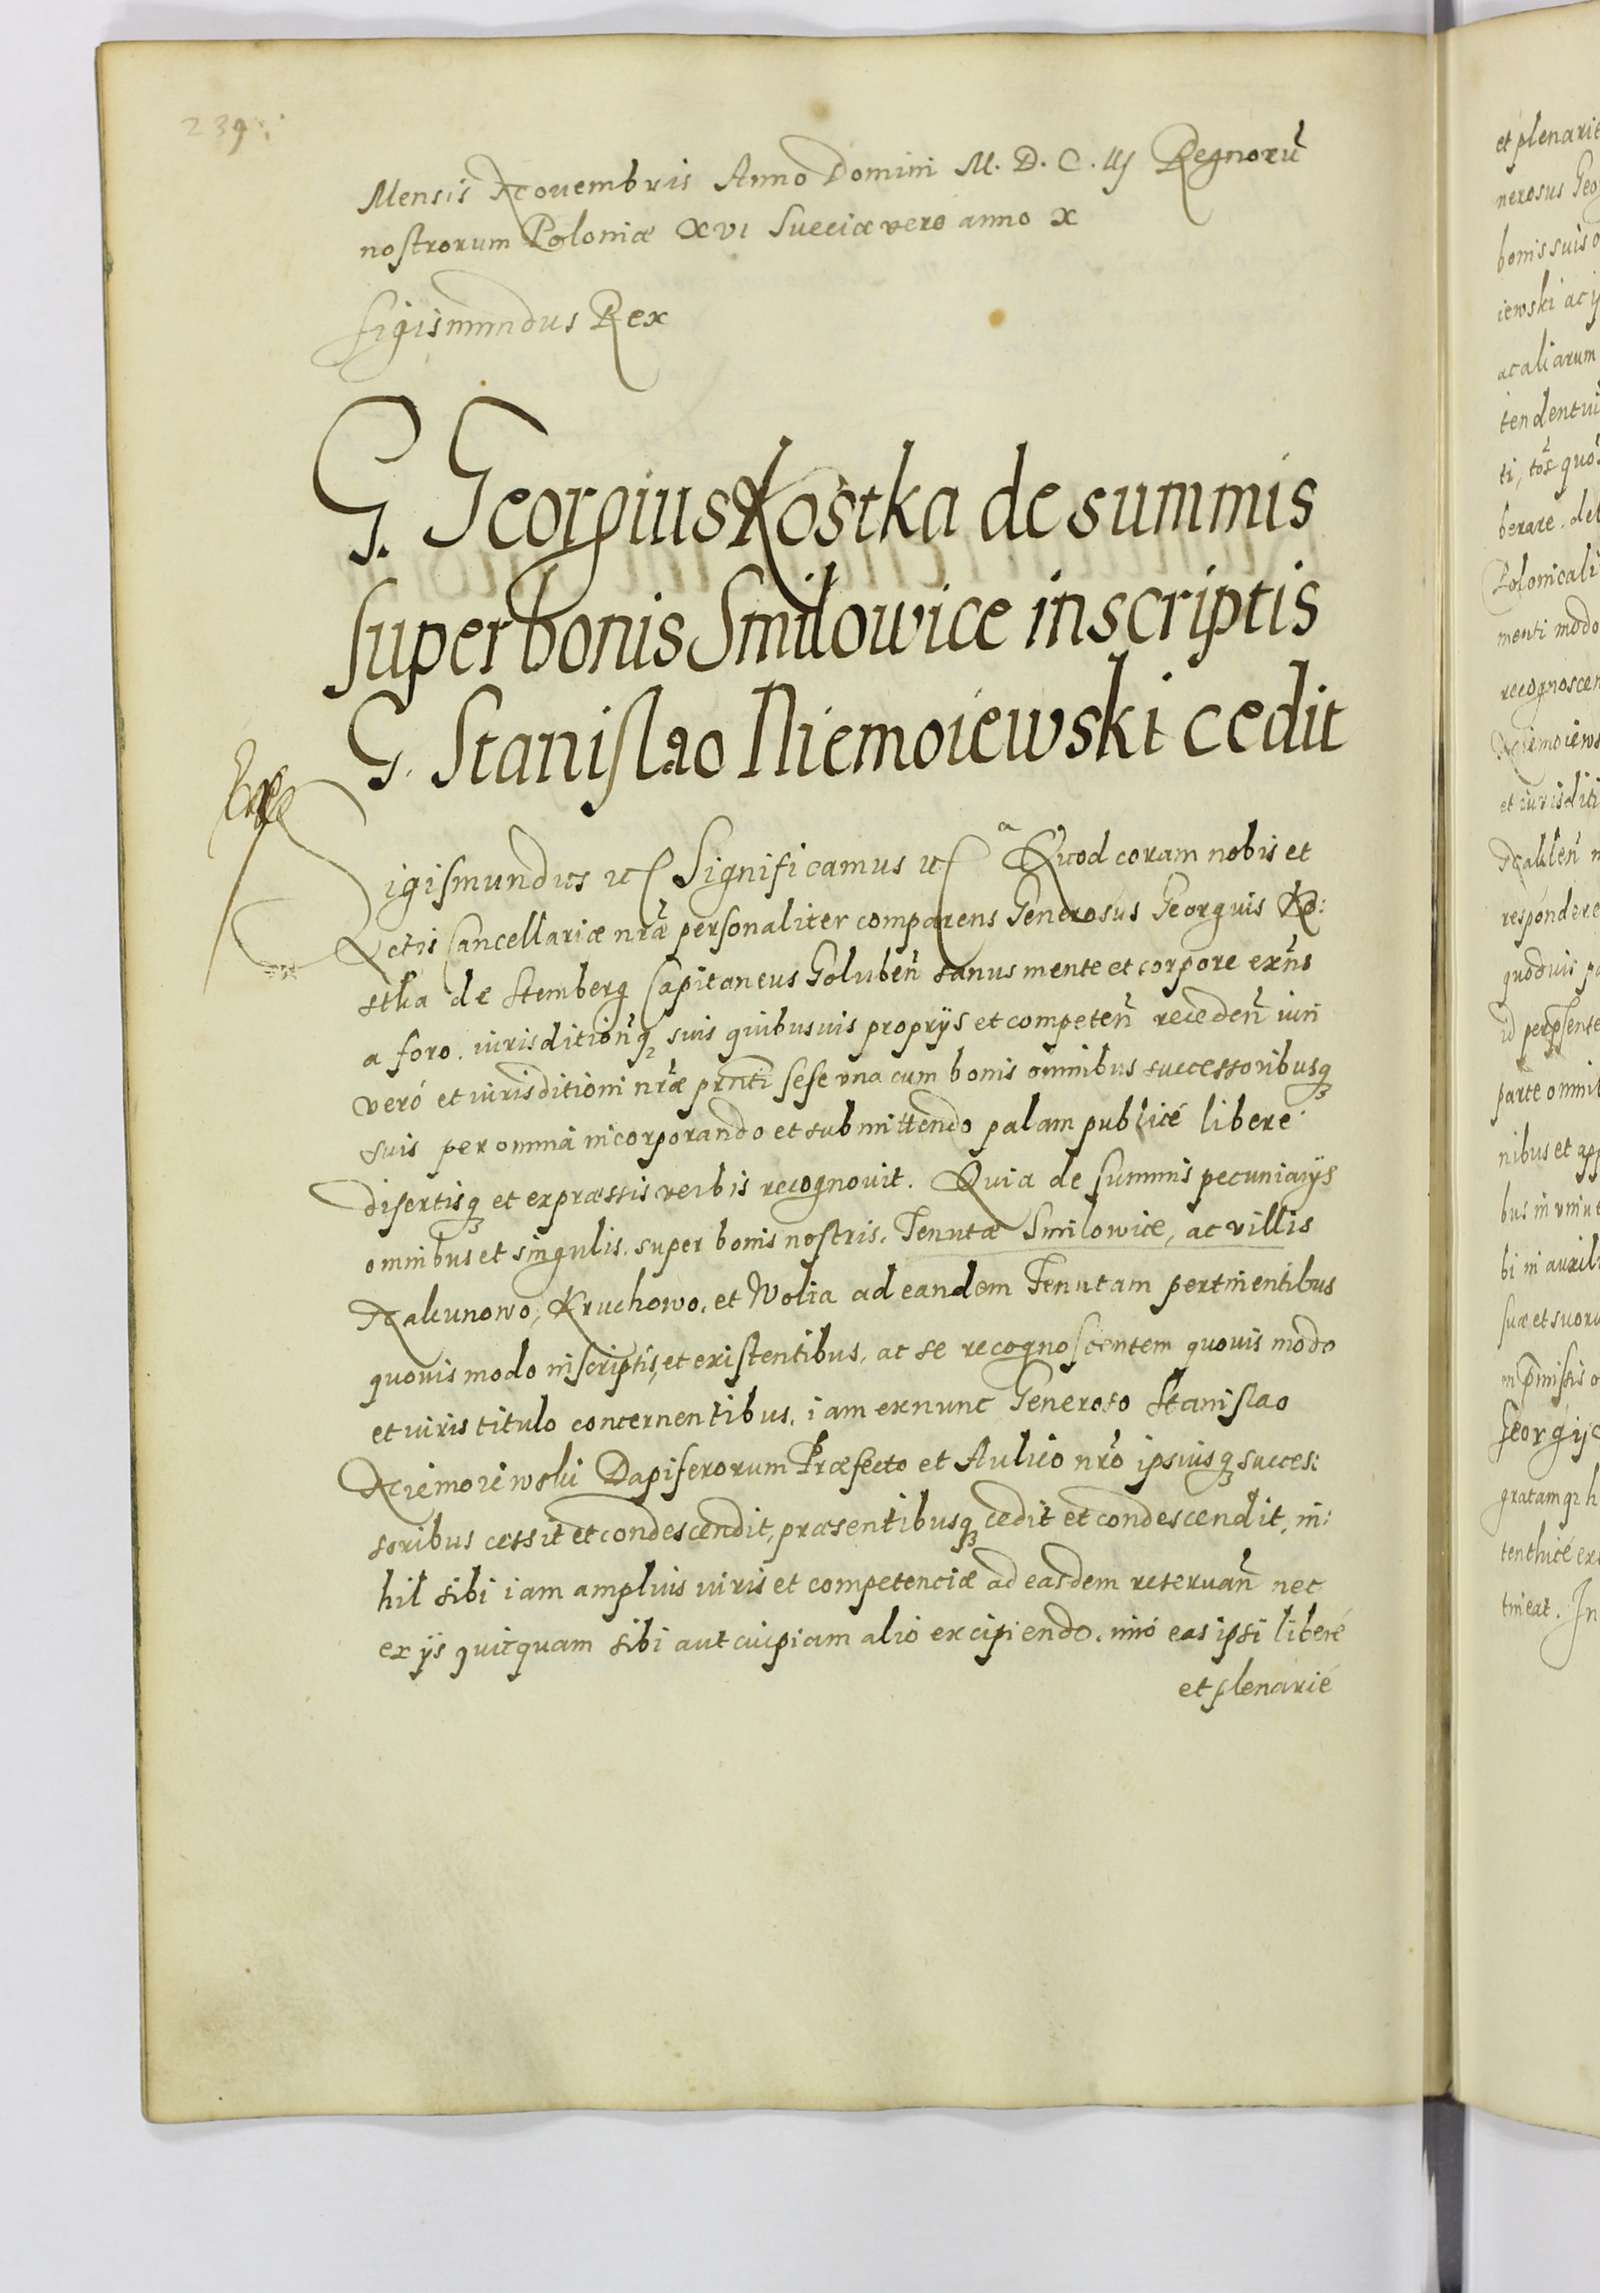 239
Mensis Nouembris Anno Domini M. D. C. iij Regnorũ
nostrorum Poloniæ XVI Sueciæ vero anno X
Sigismundus Rex
G. Georgius Kostka de summis
super bonis Smilowice inscriptis
G. Stanislao Niemoiewski cedit
Sigismundus Significamus Quod coram nobis et
Actis Cancellariæ nrã personaliter comparens Generosus Georgius Ko:
stka de Stemberg Capitaneus Goluben̄ sanus mente et corpore exn̄s
a foro. iurisdition̄q suis quibusuis proprijs et competen̄ receden̄ iuri
veró et iurisditioni nræ prnti sese vna cum bonis omnibus successoribusq
suis per omnia incorporando et submittendo palam publicé liberé
disertisq et expræssis verbis recognouit. Quia de summis pecuniarijs
omnibus et singulis. super bonis nostris. Tenutæ Smilowice, ac villis
Nakunowo, Kruchowo, et Wolia ad eandem Tenutam pertinentibus
quouis modo inscriptis, et existentibus, ac se recognoscentem quouis modo
et iuris titulo concernentibus, iam exnunc Generoso Stanislao
Niemoiewski Dapiferorum Præfecto et Aulico nro ipsiusq succes:
soribus cessit et condescendit, præsentibusq cedit et condescendit, ni:
hil sibi iam amplius iuris et competenciæ ad easdem reseruan̄ nec
ex ijs quicquam sibi aut cuipiam alio excipiendo. imó eas ipsi liberé
et plenarié
et plenarié
nerosus Geo
bonis suis o
iewski ac ij
ac aliarum
tendentiu
ti, tos quo
berare. de
Polonicali
menti modo
recognoscen
Niemoiews
et iurisditi
respondere
quoduis p
parte omni
nibus et app
bus in vniu
bi in auxil
suæ et suoru
Georgij
gratamq h
tineat. In